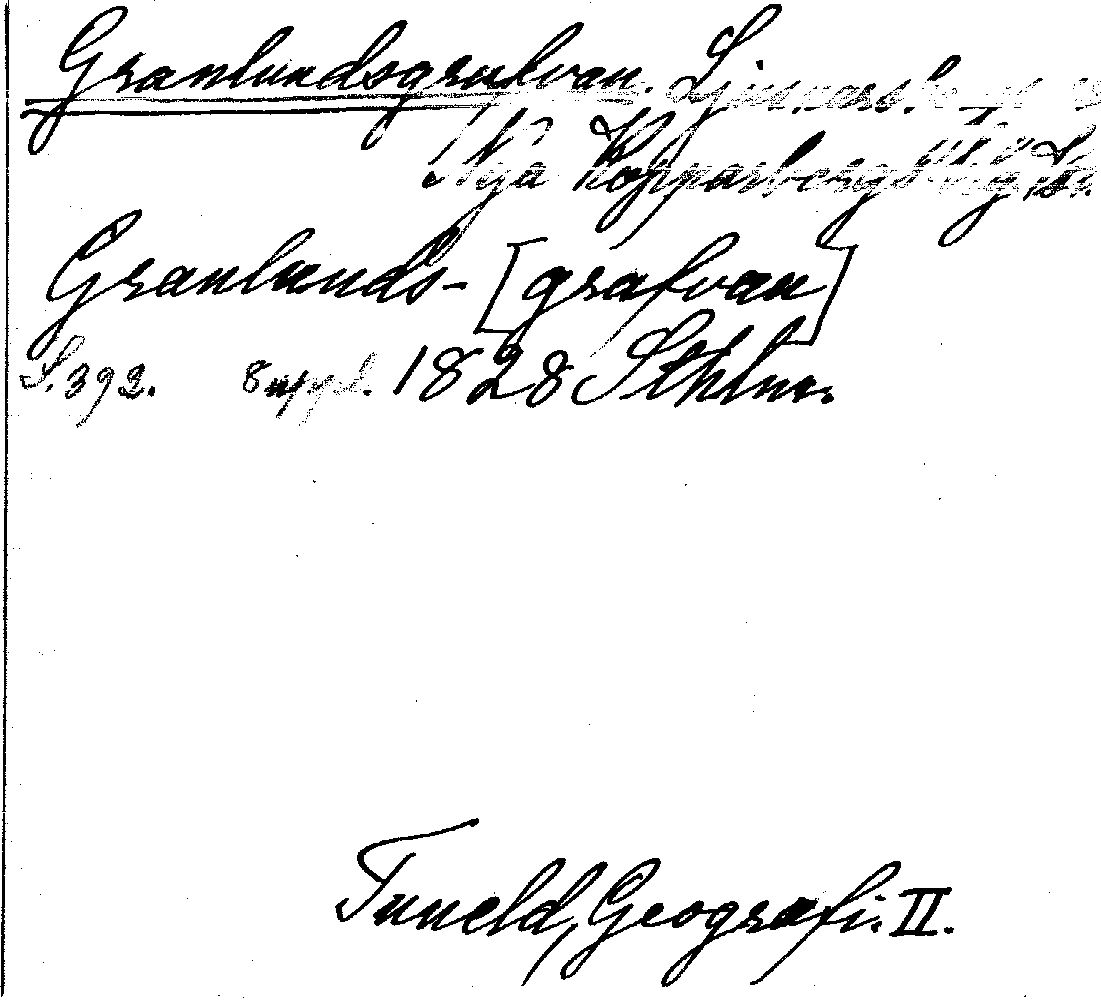 Granlundsgrufvan. Ljusnarsbergs
Nya Kopparbergs
Granlunds- [grufvan]
S. 392. 8 uppl. 1828 Sthlm.
Tuneld, Geografi. II.